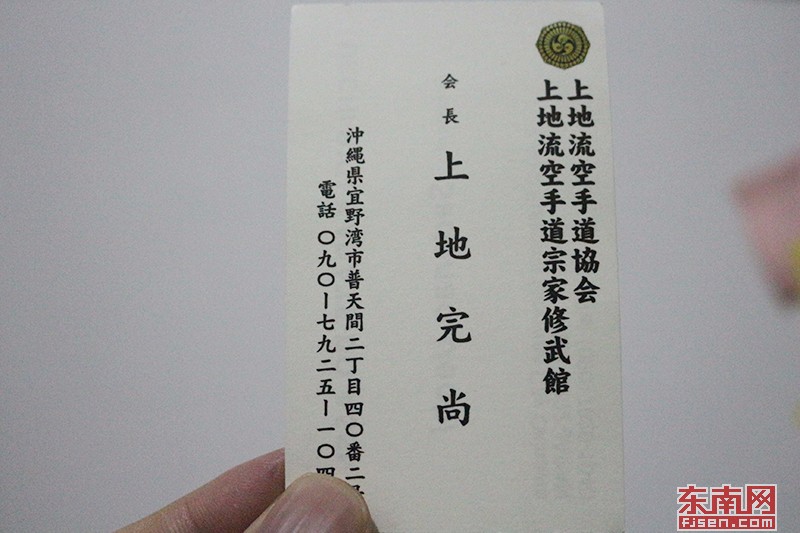 上地流空手道協会
上地流空手道宗家修武館
会長
上地完尚
沖縄県宜野湾市普天間二丁目四〇番二
電話 〇九〇ー七九二五ー一〇四
东南网
fjsen.com